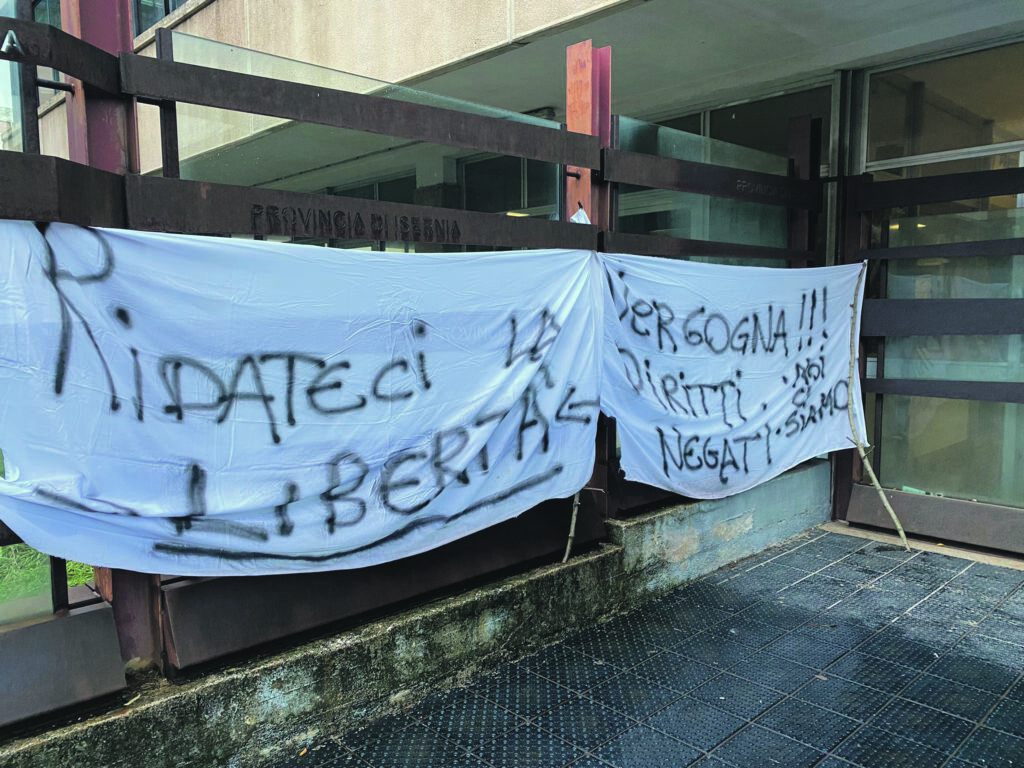 A
PROVINCIA DI ISERNIA
PROVINCIA
RiDATECi LA
LiBERTA'
VERGOGNA!!!
DiRiTTi. NOI
NEGATI. SIAMO